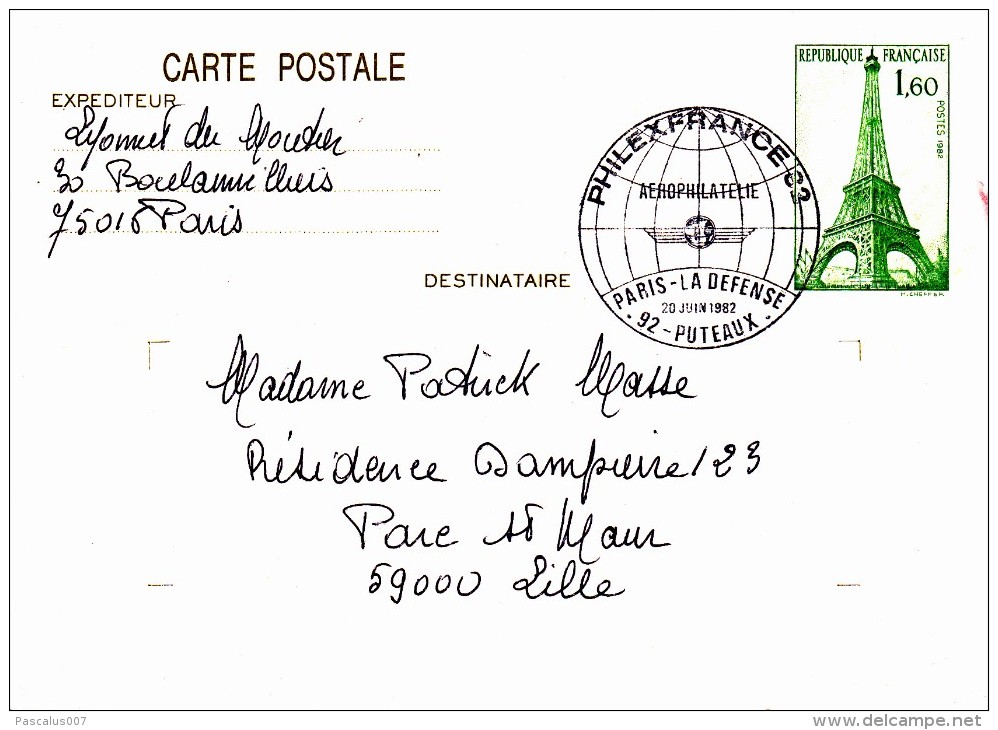 CARTE POSTALE
EXPEDITEUR
30 Boulainvilliers
75016 Paris
REPUBLIQUE FRANÇAISE
1,60
POSTES 1982
PHILEXFRANCE 82
AEROPHILATELIE
PARIS - LA DEFENSE
20 JUIN 1982
92 - PUTEAUX
DESTINATAIRE
Madame Patrick Masse
Résidence Dampierre 123
Parc St Maur
59000 Lille
Pascalus007
www.delcampe.net